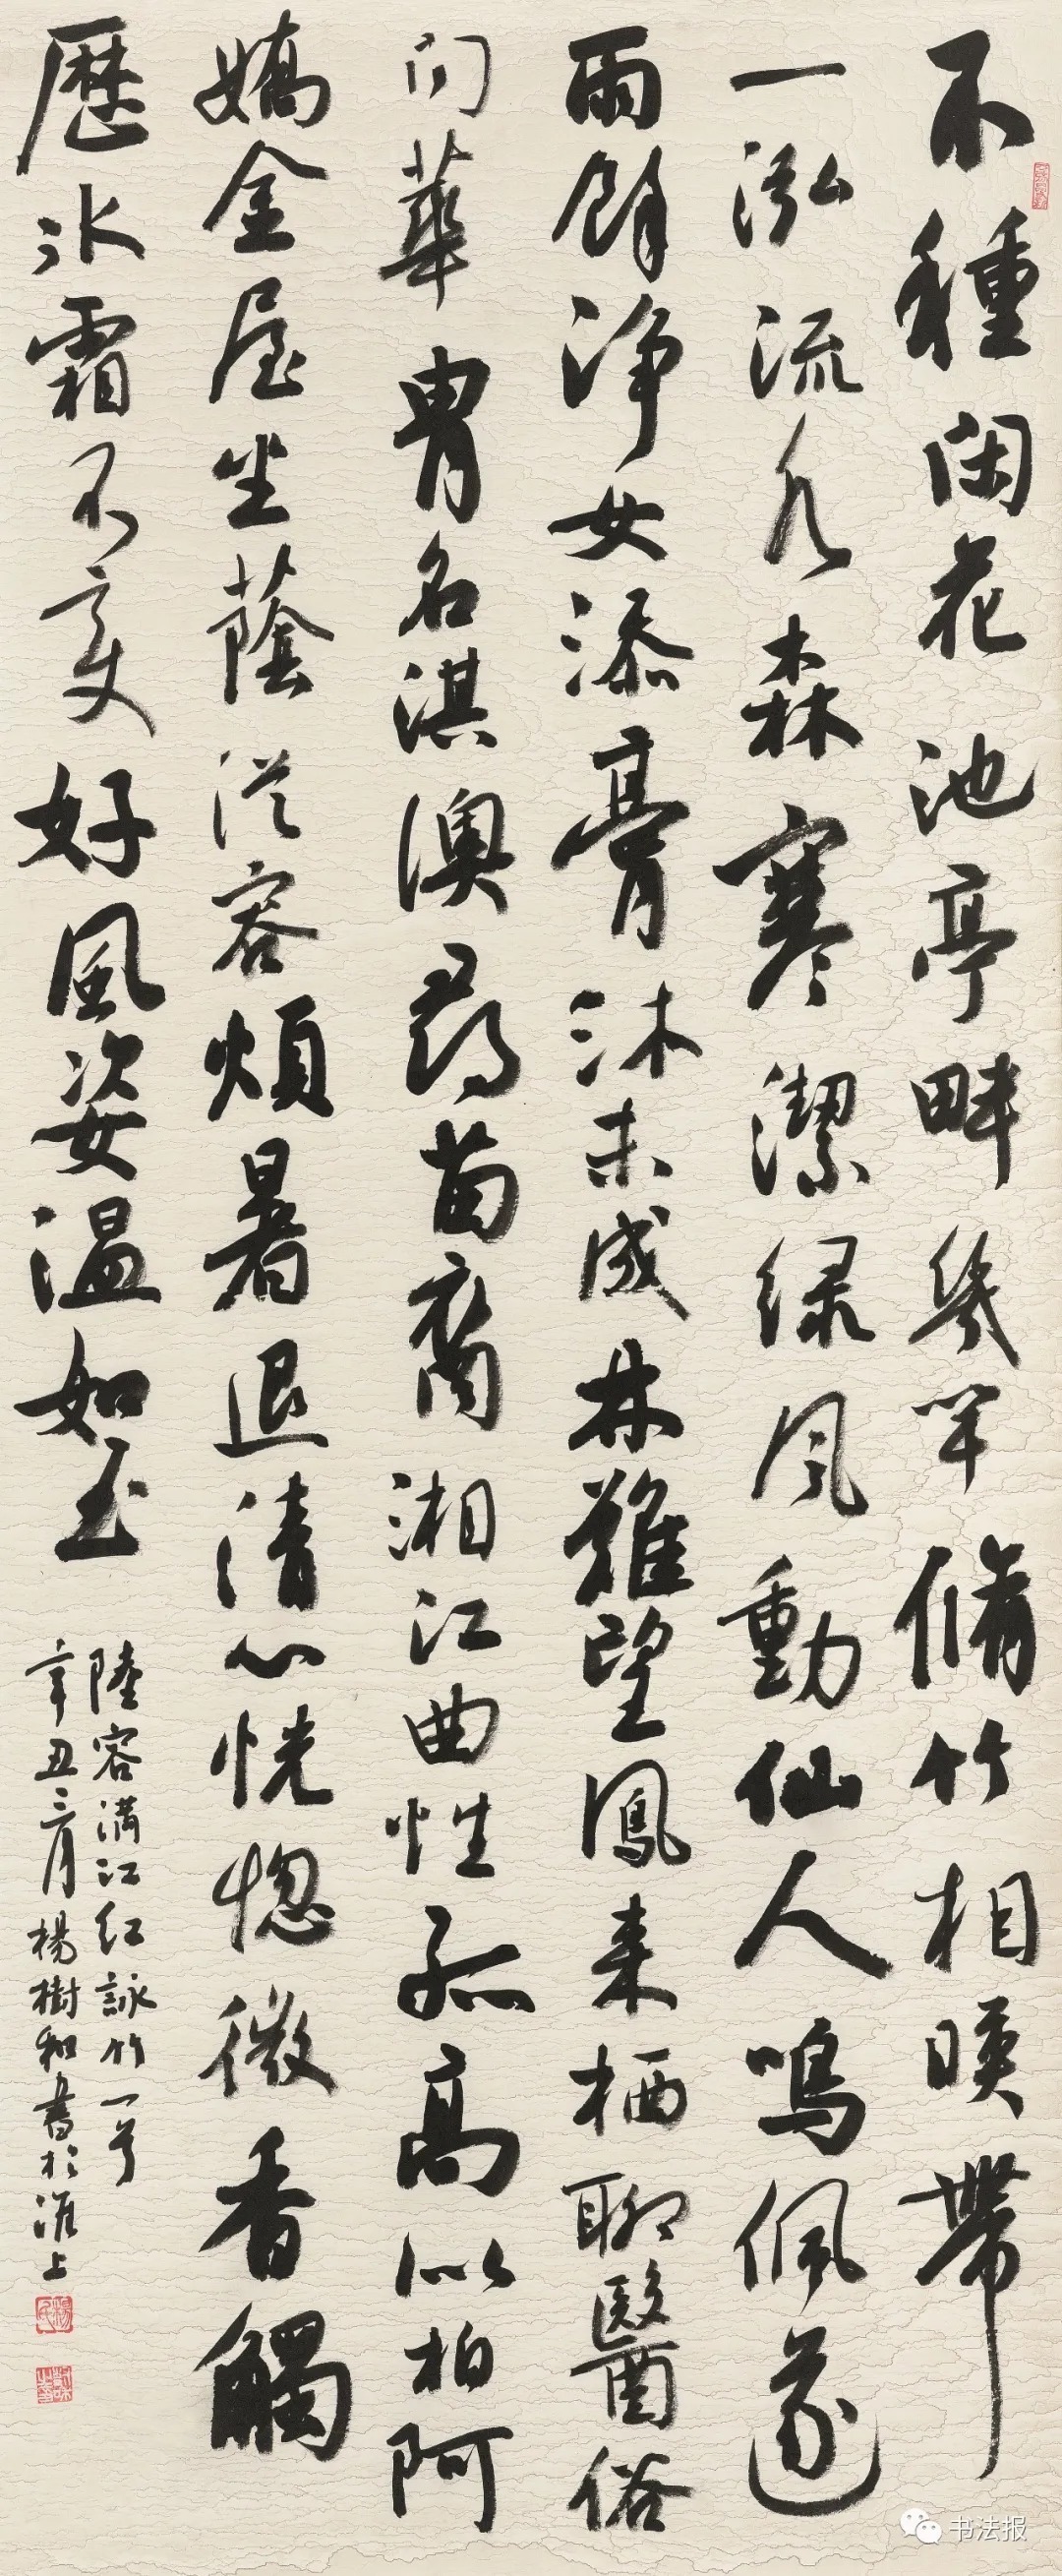 不種閑花池亭畔幾竿脩竹相暎帶
一泓流水森寒潔緑风動仙人鳴佩遂
雨餘净女添膏沐未成林難望鳳来栖聊醫俗
问華胄名淇澳尋苗裔湘江曲性孤高似柏阿
嬌金屋坐蔭従容煩暑退清心恍惚微香觸
歷冰霜不变好風姿温如玉
陸容满江红詠竹一首
辛丑三月楊樹和書於淮上
书法报